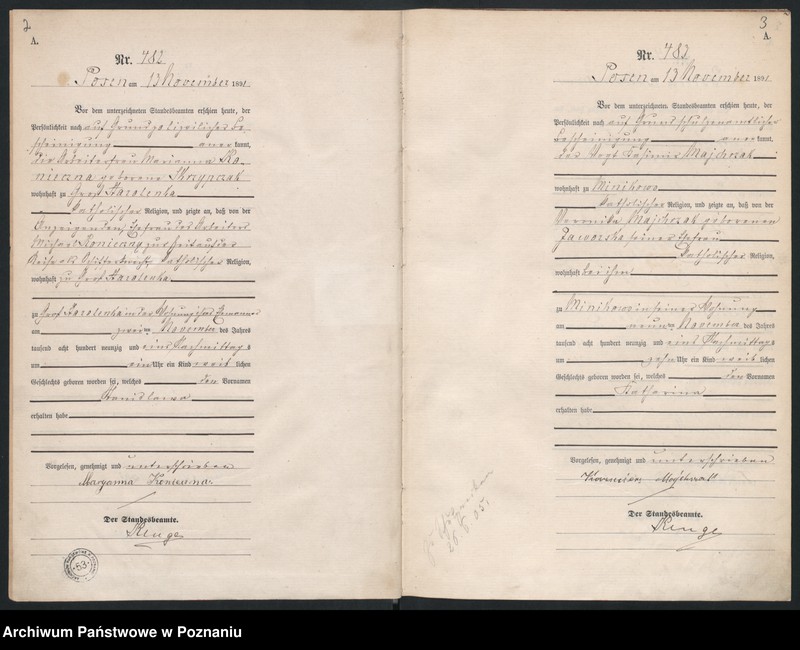 2
A.
Nr. 482
Posen am 13 November 1891
Vor dem unterzeichneten Standesbeamten erschien heute, der
Persönlichkeit nach auf Grund polizeilicher Be
scheinigung anerkannt,
die Arbeiterfrau Marianna Ko
nieczna geborene Skrzypczak
wohnhaft zu Groß Starolenka
katholischer Religion, und zeigte an, daß von der
Anzeigenden, Ehefrau des Arbeiters
Michael Konieczny zur Zeit auf der
katholischer Religion,
wohnhaft zu Groß Starolenka
zu Groß Starolenka in der Wohnung ihres Ehemannes
am zweiten November des Jahres
tausend acht hundert neunzig und eins Nachmittags
um ein Uhr ein Kind weiblichen
Geschlechts geboren worden sei, welches den Vornamen
Stanislawa
erhalten habe
Vorgelesen, genehmigt und unterschrieben
Maryanna Konieczna
Der Standesbeamte.
ARCHIWUM PAŃSTWOWE W POZNANIU
53
3
A.
Nr. 483
Posen am 13 November 1891
Vor dem unterzeichneten Standesbeamten erschien heute, der
Persönlichkeit nach auf Grund schulzenamtlicher
Bescheinigung anerkannt,
der Vogt Casimir Majchrzak
wohnhaft zu Minikowo
katholischer Religion, und zeigte an, daß von der
Veronika Majchrzak geborenen
Jaworska seiner Ehefrau
katholischer Religion,
wohnhaft bei ihm
zu Minikowo in seiner Wohnung
am neunten November des Jahres
tausend acht hundert neunzig und eins Nachmittags
um zehn Uhr ein Kind weiblichen
Geschlechts geboren worden sei, welches den Vornamen
Katharina
erhalten habe
Vorgelesen, genehmigt und unterschrieben
Der Standesbeamte.
Archiwum Państwowe w Poznaniu